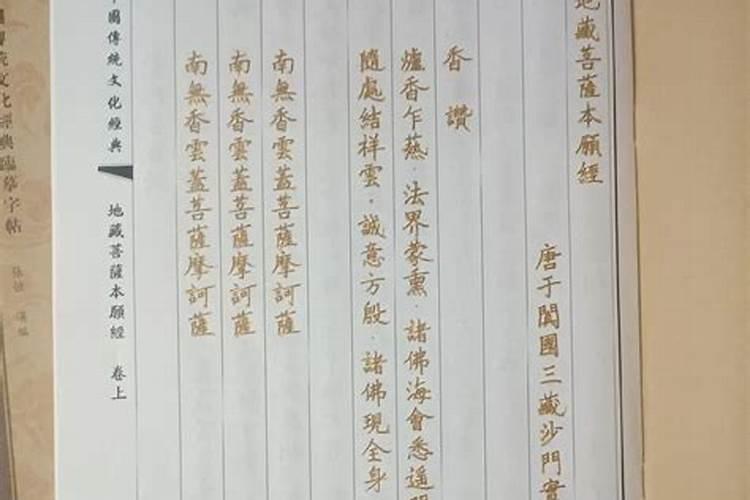 地藏菩薩本願經
唐于闐國三藏沙門實
香讚
爐香乍爇．法界蒙熏．諸佛海會悉遙
隨處結祥雲．誠意方殷．諸佛現全身
南無香雲蓋菩薩摩訶薩
南無香雲蓋菩薩摩訶薩
南無香雲蓋菩薩摩訶薩
中國傳統文化經典
地藏菩薩本願經 卷上
國傳統文化經典臨摹字帖